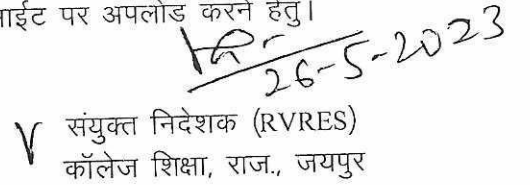 ाईट पर अपलोड करने हेतु।
26-5-2023
संयुक्त निदेशक (RVRES)
कॉलेज शिक्षा, राज., जयपुर